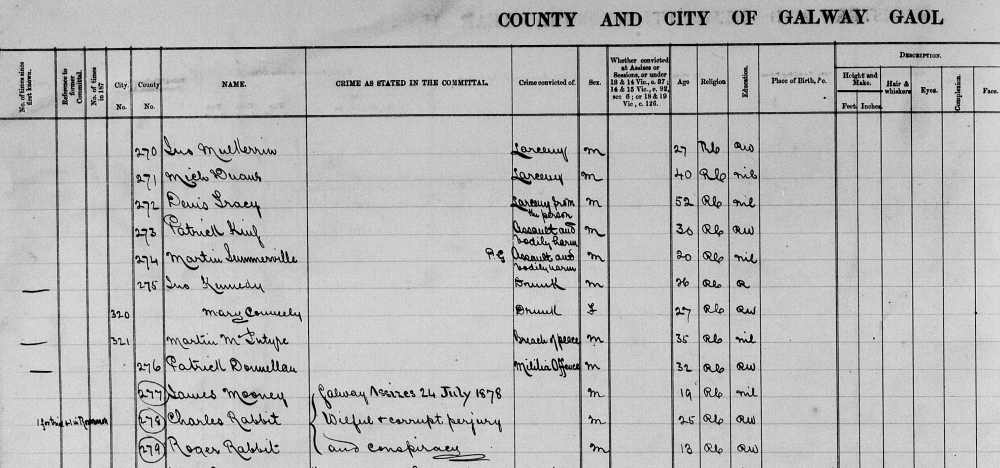 COUNTY AND CITY OF GALWAY GAOL
No. of times since first known.
Reference to former Committal.
No. of times in 187
City.
No.
County
No.
NAME.
CRIME AS STATED IN THE COMMITTAL.
Crime convicted of.
Sex.
Whether convicted at Assizes or Sessions, or under 13 & 14 Vic., c. 37; 14 & 15 Vic., c. 92, sec 6; or 18 & 19 Vic., c. 126.
Age
Religion
Education.
Place of Birth, &c.
DESCRIPTION.
Height and Make.
Feet. Inches.
Hair & whiskers
Eyes.
Complexion.
Face.
270 Jno Mulkerrin Larceny m 27 Rc RW
271 Mich Duane Larceny m 40 Rc nil
272 Denis Gracy Larceny from the person m 52 Rc nil
273 Patrick King Assault and bodily harm m 30 Rc RW
274 Martin Summerville P.G Assault and bodily harm m 20 Rc nil
275 Jno Kennedy Drunk m 26 Rc R
320 Mary Conneely Drunk F 27 Rc RW
321 Martin McIntype Breach of peace m 35 Rc nil
276 Patrick Donnellan Militia Offence m 32 Rc RW
277 James Mooney Galway Assizes 24 July 1878 m 19 Rc nil
278 Charles Rabbit Wilful & corrupt perjury m 25 Rc RW
279 Roger Rabbit and conspiracy m 13 Rc RW